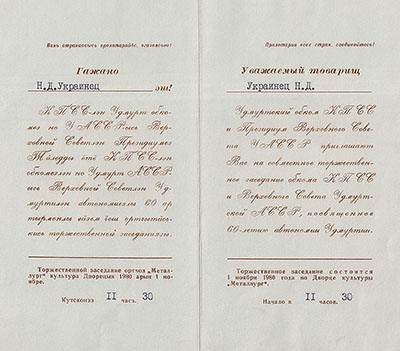 Вань странаосысь пролетарийёс, огазеяське!
Гажано
Н.Д.Украинец эш!
КПСС-лэн Удмурт обко-
мез но УАССР-ысь Вер-
ховной Советлэн Президиумез
Тӥледды ӧте КПСС-лэн
обкомезлэн но Удмурт АССР-
ысь Верховной Советлэн Уд-
муртилэн автономиезлы 60 ар
тырмонлы сӥзем ӵош ортчытӥсь-
кись торжественной заседаниязы.
Торжественной заседание ортчоз „Метал-
лург" культура Дворецын 1980 арын 1 но-
ябре.
Кутсконэз II часъ. 30
Пролетарии всех стран, соединяйтесь!
Уважаемый товарищ
Украинец Н.Д.
Удмуртский обком КПСС
и Президиум Верховного Сове-
та УАССР приглашают
Вас на совместное торжествен-
ное заседание обкома КПСС
и Верховного Совета Удмурт-
ской АССР, посвященное
60-летию автономии Удмуртии.
Торжественное заседание состоится
1 ноября 1980 года во Дворце культуры
„Металлург".
Начало в II часов. 30